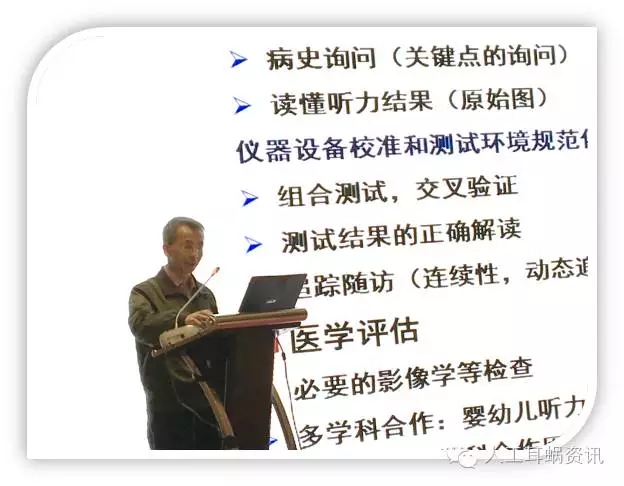 病史询问（关键点的询问）
读懂听力结果（原始图）
仪器设备校准和测试环境规范化
组合测试，交叉验证
测试结果的正确解读
追踪随访（连续性，动态追
医学评估
必要的影像学等检查
多学科合作：婴幼儿听力
科合作
人工耳蜗资讯